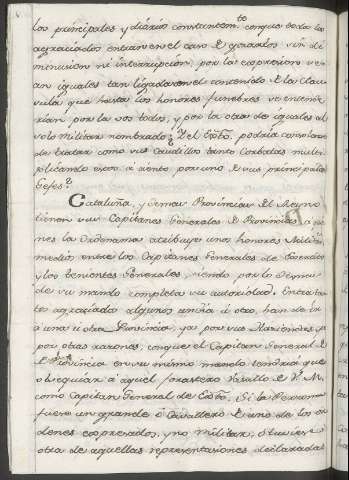 los principales y diarios constantem.te conque todos los
agraciados entran en el caso de gozarlos sin di
minucion ni interrupcion, por la expresion ve
an iguales tan ligada en el contenido de la Clau
sula que hasta los honores funebres se entende
rian por la sos todos, y por la otra de iguales al
solo militar nombrado? Y el Exto. podria complacer
de tratar como sus Caudillos tanto Corbatas multi
plicando cien à ciento por uno de sus principales
Gefes?
Cataluña, y demas Provincias del Reyno
tienen sus Capitanes Generales de Provincias à quie
nes la Ordenanza atribuye unos honores Milita.s
medios entre los Capitanes Generales de Exercito
y los tenientes Generales, siendo por lo demas
de su mando completa su autoridad. Entre tan
to agraciado algunos un dia ù otro han de ir
à una ù otra Provincia, ya por sus Haciendas, ya
por otras razones, conque el Capitan General de
la Provincia en su mismo mando tendria que
obsequiar à aquel forastero Vasallo de V. M.
como Capitan General de Exto. Si la Persona
fuere un grande ò Cavallero de uno de los or
denes expresados, y no militar, ò tuviere
otra de aquellas representaciones declaradas